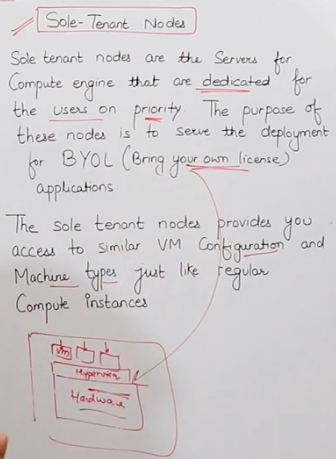 Sole-Tenant Nodes
Sole tenant nodes are the Servers for
Compute engine that are dedicated for
the users on priority. The purpose of
these nodes is to serve the deployment
for BYOL (Bring your own license)
applications.
The sole tenant nodes provides you
access to similar VM Configuration and
Machine types just like regular
Compute instances
Vm
Hypervisor
Hardware